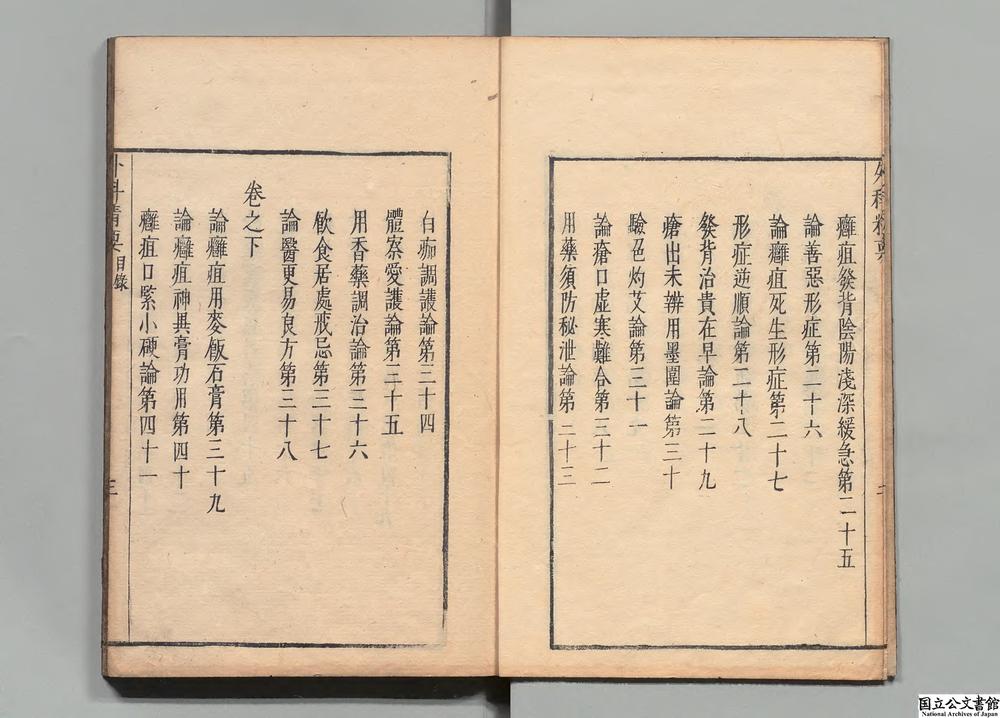 癰疽發背陰陽淺深緩急第二十五
論善惡形症第二十六
論癰疽死生形症第二十七
形症逆順論第二十八
發背治貴在早論第二十九
瘡出未辨用墨圍論第三十
驗已灼艾論第三十一
論瘡口虛寒難合第三十二
用藥須防秘泄論第三十三
白痂調護論第三十四
體察愛護論第三十五
用香藥調治論第三十六
飲食居處戒忌第三十七
論醫更易良方第三十八
卷之下
論癰疽用麥飯石膏第三十九
論癰疽神異膏功用第四十
癰疽口緊小硬論第四十一
外科精要 目錄
三
国立公文書館
National Archives of Japan